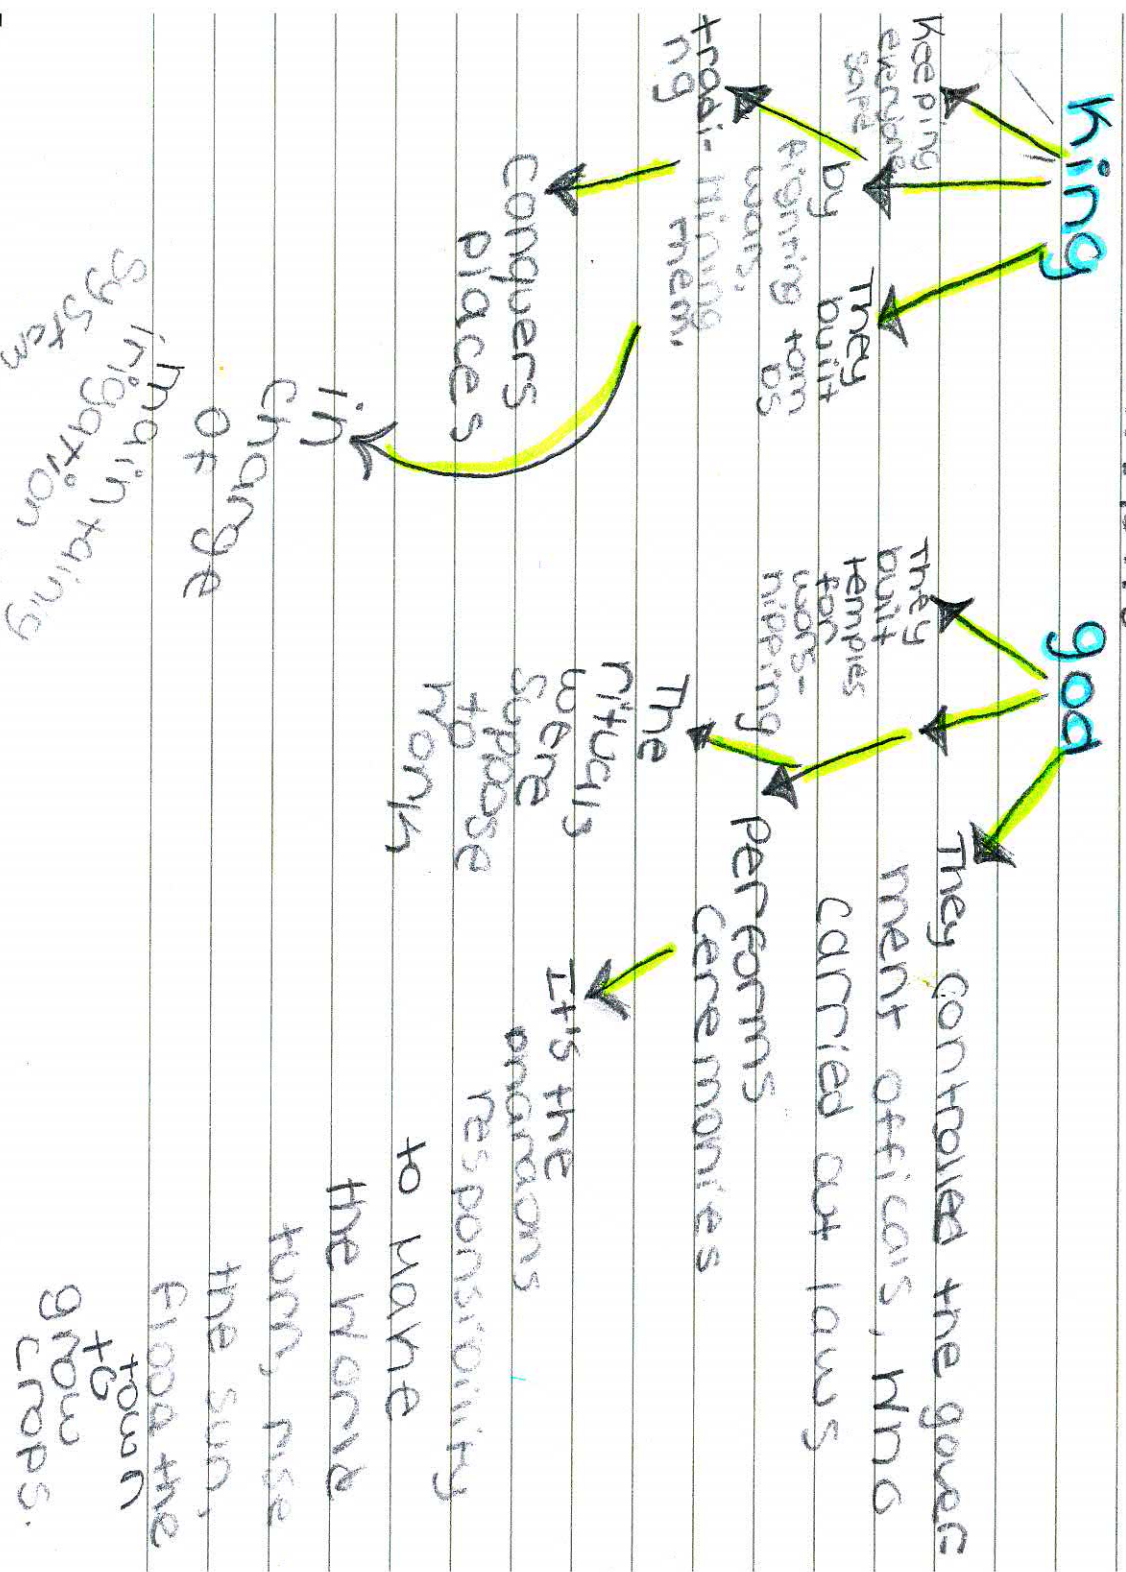 King
Keeping
everyone
safe
by
fighting
wars,
trading
Mining
them.
They
built
tombs
conquers
places
in
charge
of
maintaining
irrigation
system
god
They
built
temples
for
wors-
hipping
The
rituals
were
suppose
to
work
They controlled the govern
ment officals, who
carried out laws
performs
ceremonies
It's the
responsibility
to have
the world
turn, rise
the sun,
flood the
town
to
grow
crops.